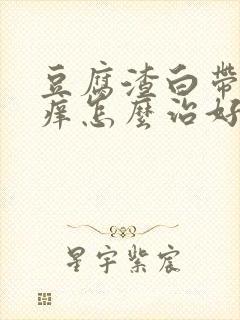 豆腐渣白带
痒怎麽治好
星宇紫宸